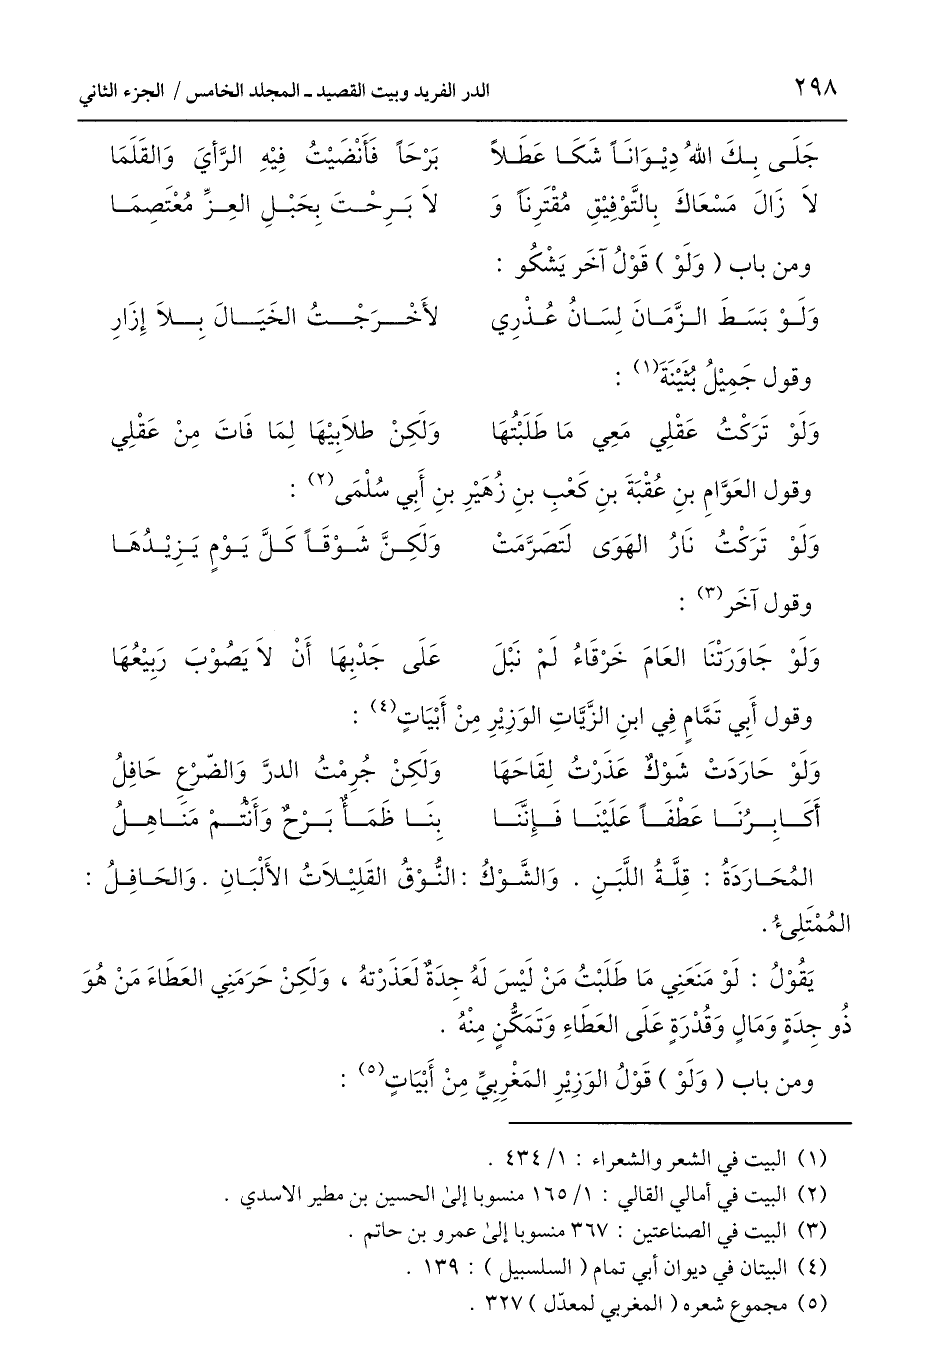 ٢٩٨ الدر الفريد وبيت القصيد ـ المجلد الخامس / الجزء الثاني
جَلَى بِكَ اللهُ دِيْوَانَاً شَكَا عَطَلاً بَرْحَاً فَأَنْضَيْتُ فِيْهِ الرَّأيَ وَالقَلَمَا
لاَ زَالَ مَسْعَاكَ بِالتَّوْفِيْقِ مُقْتَرِناً وَ لاَ بَرِحْتَ بِحَبْلِ العِزِّ مُعْتَصِمَا
ومن باب ( وَلَوْ ) قَوْلُ آخَر يَشْكُو :
وَلَوْ بَسَطَ الزَّمَانَ لِسَانُ عُذْرِي لأَخْرَجْتُ الخَيَالَ بِلاَ إِزَارِ
وقول جَمِيْلُ بُثَيْنَةَ(١) :
وَلَوْ تَرَكْتُ عَقْلِي مَعِي مَا طَلَبْتُهَا وَلَكِنْ طلاَبِيْهَا لِمَا فَاتَ مِنْ عَقْلِي
وقول العَوَّامِ بنِ عُقْبَةَ بنِ كَعْبِ بنِ زُهَيْرِ بنِ أَبِي سُلْمَى(٢) :
وَلَوْ تَرَكْتُ نَارُ الهَوَى لَتَصَرَّمَتْ وَلَكِنَّ شَوْقَاً كَلَّ يَوْمٍ يَزِيْدُهَا
وقول آخَر(٣) :
وَلَوْ جَاوَرَتْنَا العَامَ خَرْقَاءُ لَمْ نَبْلَ عَلَى جَدْبِهَا أَنْ لاَ يَصُوْبَ رَبِيْعُهَا
وقول أَبِي تَمَّامٍ فِي ابنِ الزَّيَّاتِ الوَزِيْرِ مِنْ أَبْيَاتٍ(٤) :
وَلَوْ حَارَدَتْ شَوْكٌ عَذَرْتُ لِقَاحَهَا وَلَكِنْ حُرِمْتُ الدرَّ وَالضّرْعِ حَافِلُ
أَكَابِرُنَا عَطْفَاً عَلَيْنَا فَإِنَّنَا بِنَا ظَمَأٌ بَرْحٌ وَأَنْتُمْ مَنَاهِلُ
المُحَارَدَةُ : قِلَّةُ اللَّبَنِ . وَالشَّوْكُ : النُّوْقُ القَلِيْلاَتُ الأَلْبَانِ . وَالحَافِلُ :
المُمْتَلِىءُ .
يَقُوْلُ : لَوْ مَنَعَنِي مَا طَلَبْتُ مَنْ لَيْسَ لَهُ جِدَةٌ لَعَذَرْتهُ ، وَلَكِنْ حَرَمَنِي العَطَاءَ مَنْ هُوَ
ذُو جِدَةٍ وَمَالٍ وَقُدْرَةٍ عَلَى العَطَاءِ وَتَمَكُّنٍ مِنْهُ .
ومن باب ( وَلَوْ ) قَوْلُ الوَزِيْرِ المَغْرِبِيِّ مِنْ أَبْيَاتٍ(٥) :
(١) البيت في الشعر والشعراء : ١/ ٤٣٤ .
(٢) البيت في أمالي القالي : ١/ ١٦٥ منسوبا إلىٰ الحسين بن مطير الاسدي .
(٣) البيت في الصناعتين : ٣٦٧ منسوبا إلىٰ عمرو بن حاتم .
(٤) البيتان في ديوان أبي تمام ( السلسبيل ) : ١٣٩ .
(٥) مجموع شعره ( المغربي لمعدّل ) ٣٢٧ .